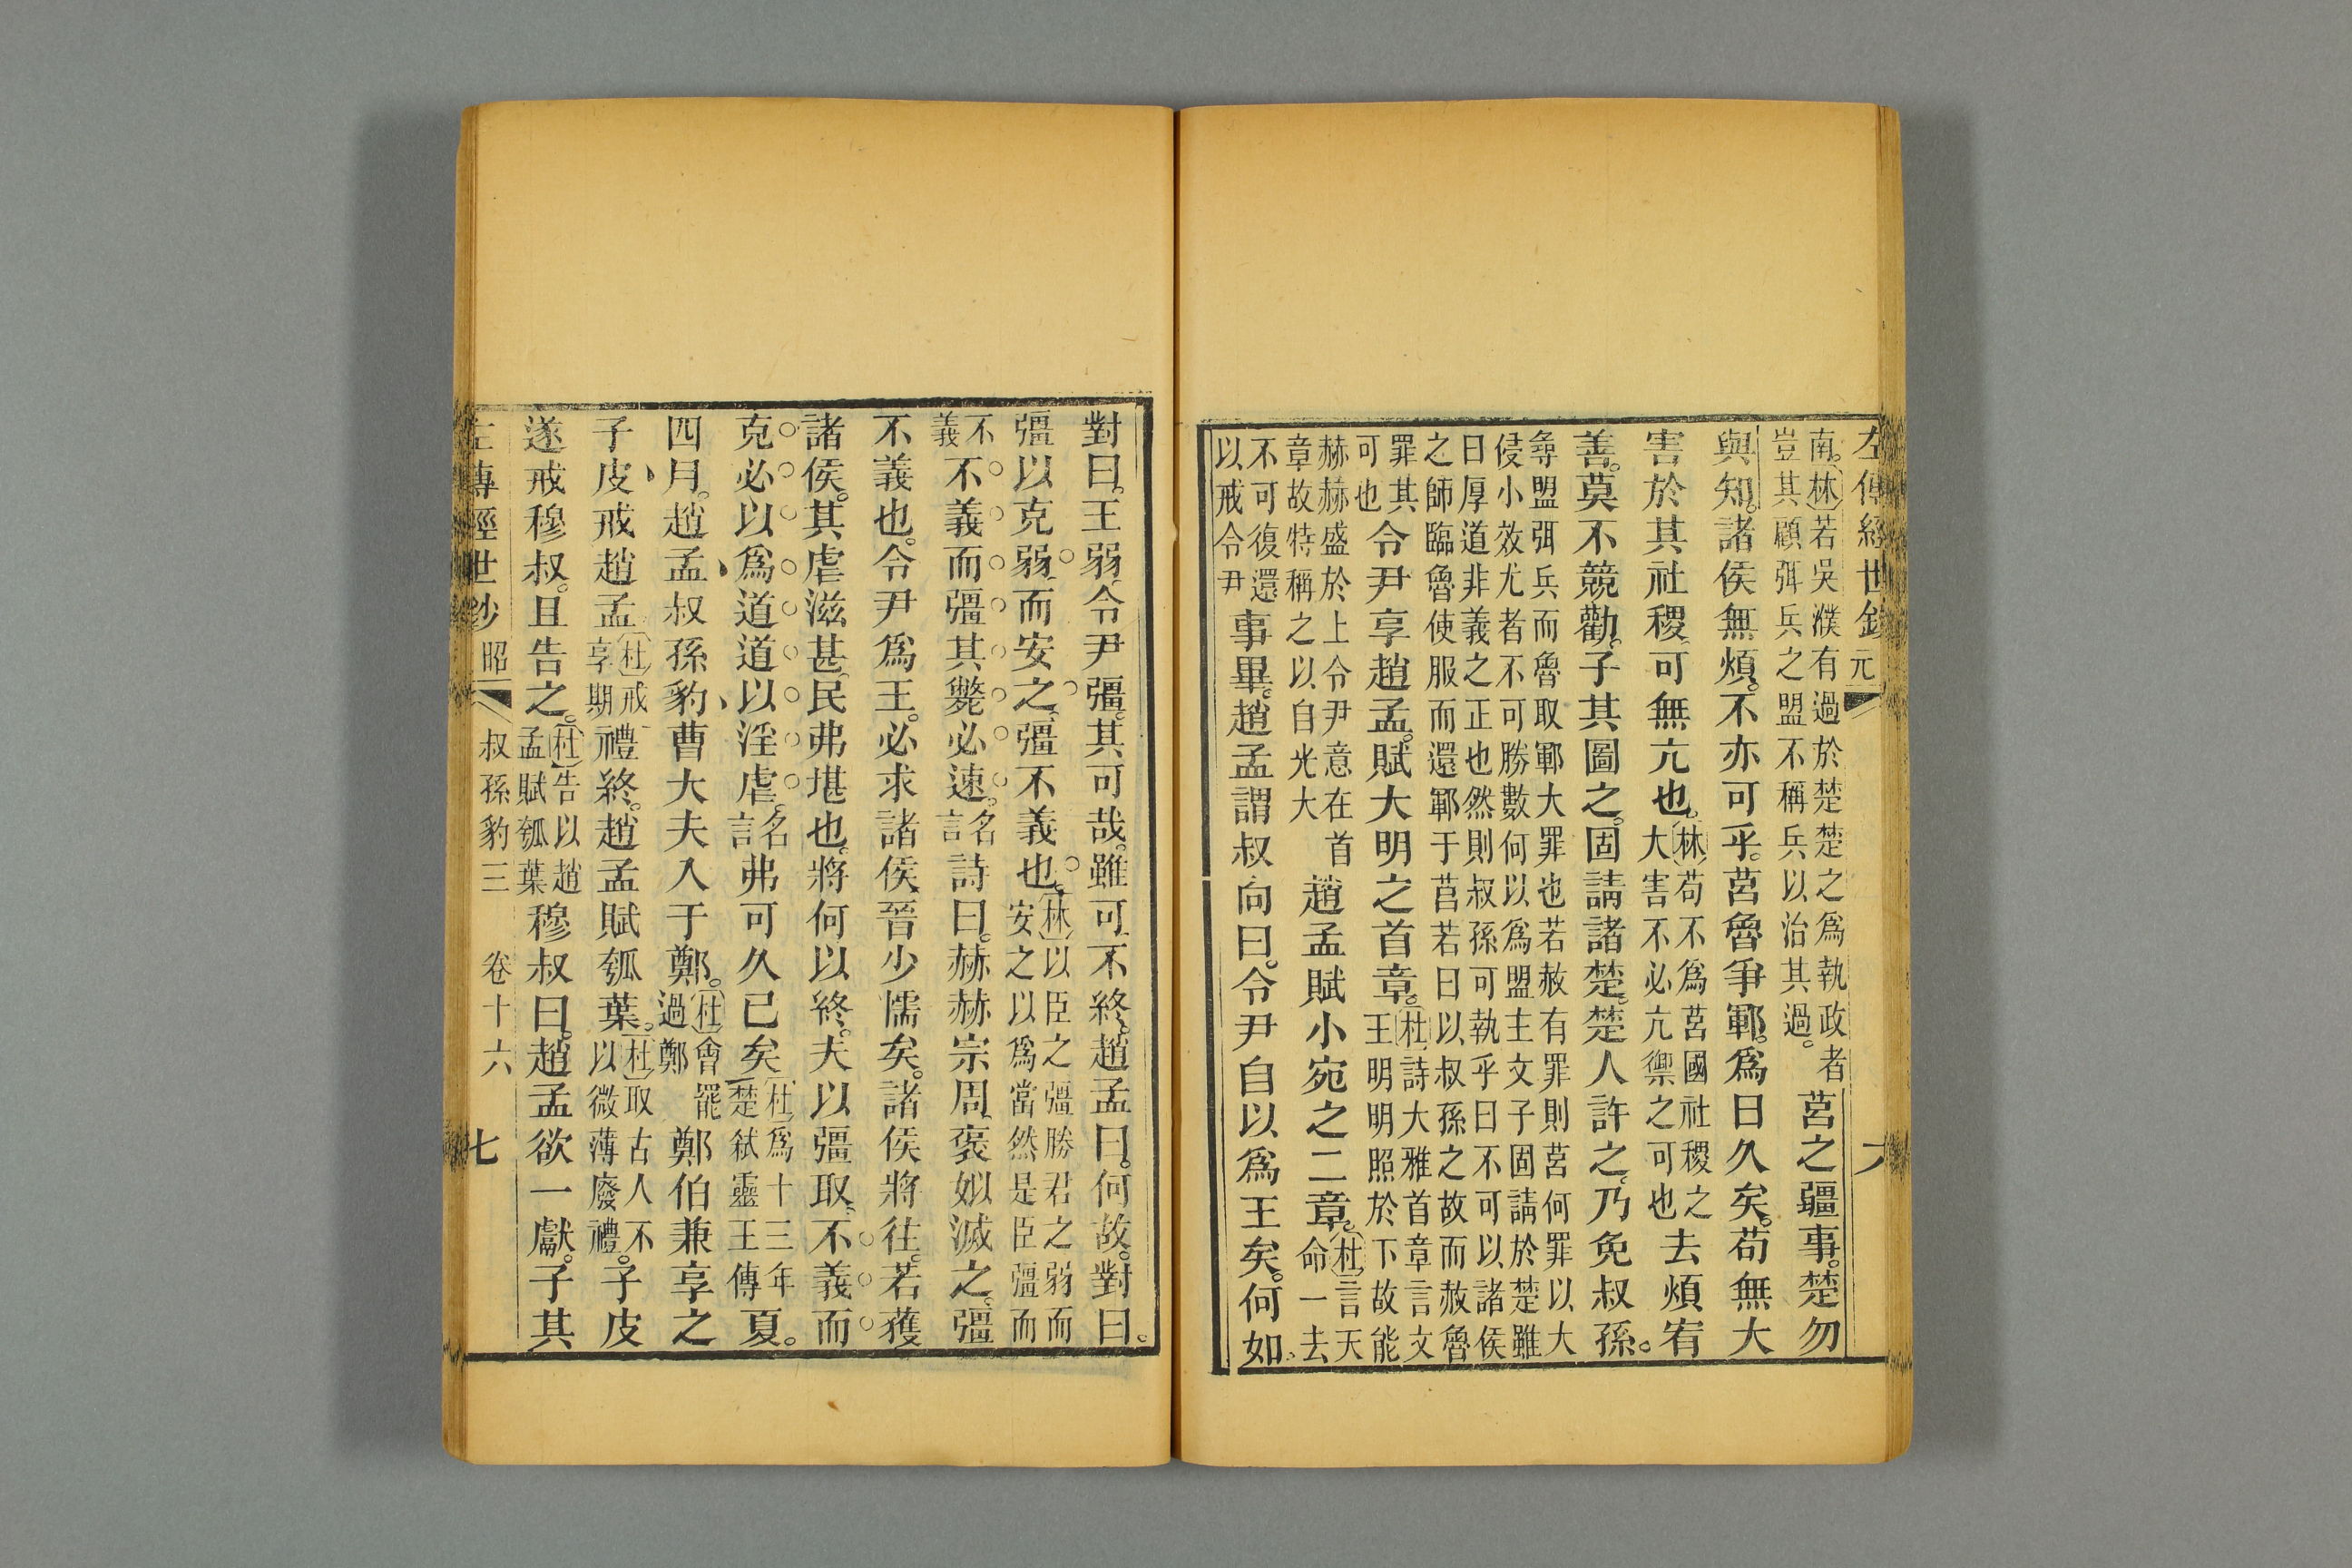 左傳經世鈔 元
南。林若吳濮有過於楚楚之爲執政者豈其顧弭兵之盟不稱兵以治其過。莒之疆事。楚勿
與知。諸侯無煩。不亦可乎。莒魯爭鄆。爲日久矣。苟無大
害於其社稷。可無亢也。林苟不爲莒國社稷之大害不必亢禦之可也去煩宥
善。莫不競勸。子其圖之。固請諸楚。楚人許之。乃免叔孫。
尋盟弭兵而魯取鄆大罪也若赦有罪則莒何罪以大侵小效尤者不可勝數何以爲盟主文子固請於楚雖
曰厚道非義之正也然則叔孫可執乎曰不可以諸侯之師臨魯使服而還鄆于莒若曰以叔孫之故而赦魯
罪其可也令尹享趙孟。賦大明之首章。杜詩大雅首章言文王明明照於下故能
赫赫盛於上令尹意在首章故特稱之以自光大趙孟賦小宛之二章。杜言天命一去
不可復還以戒令尹事畢。趙孟謂叔向曰。令尹自以爲王矣。何如。
對曰。王弱。令尹彊。其可哉。雖可不終。趙孟曰。何故。對曰。
彊以克弱。而安之。彊不義也。林以臣之彊勝君之弱而安之以爲當然是臣彊而
不義不義而彊。其斃必速。名言詩曰。赫赫宗周。褒姒滅之。彊
不義也。令尹爲王。必求諸侯。晉少懦矣。諸侯將往。若獲
諸侯。其虐滋甚。民弗堪也。將何以終。夫以彊取。不義而
克。必以爲道。道以淫虐。名言弗可久已矣。杜爲十三年楚弑靈王傳夏。
四月。趙孟叔孫豹曹大夫入于鄭。杜會罷過鄭鄭伯兼享之
子皮戒趙孟杜戒享期禮終。趙孟賦瓠葉。杜取古人不以微薄廢禮。子皮
遂戒穆叔。且告之。杜告以趙孟賦瓠葉穆叔曰。趙孟欲一獻。子其
左傳經世鈔 昭 叔孫豹三 卷十六 七